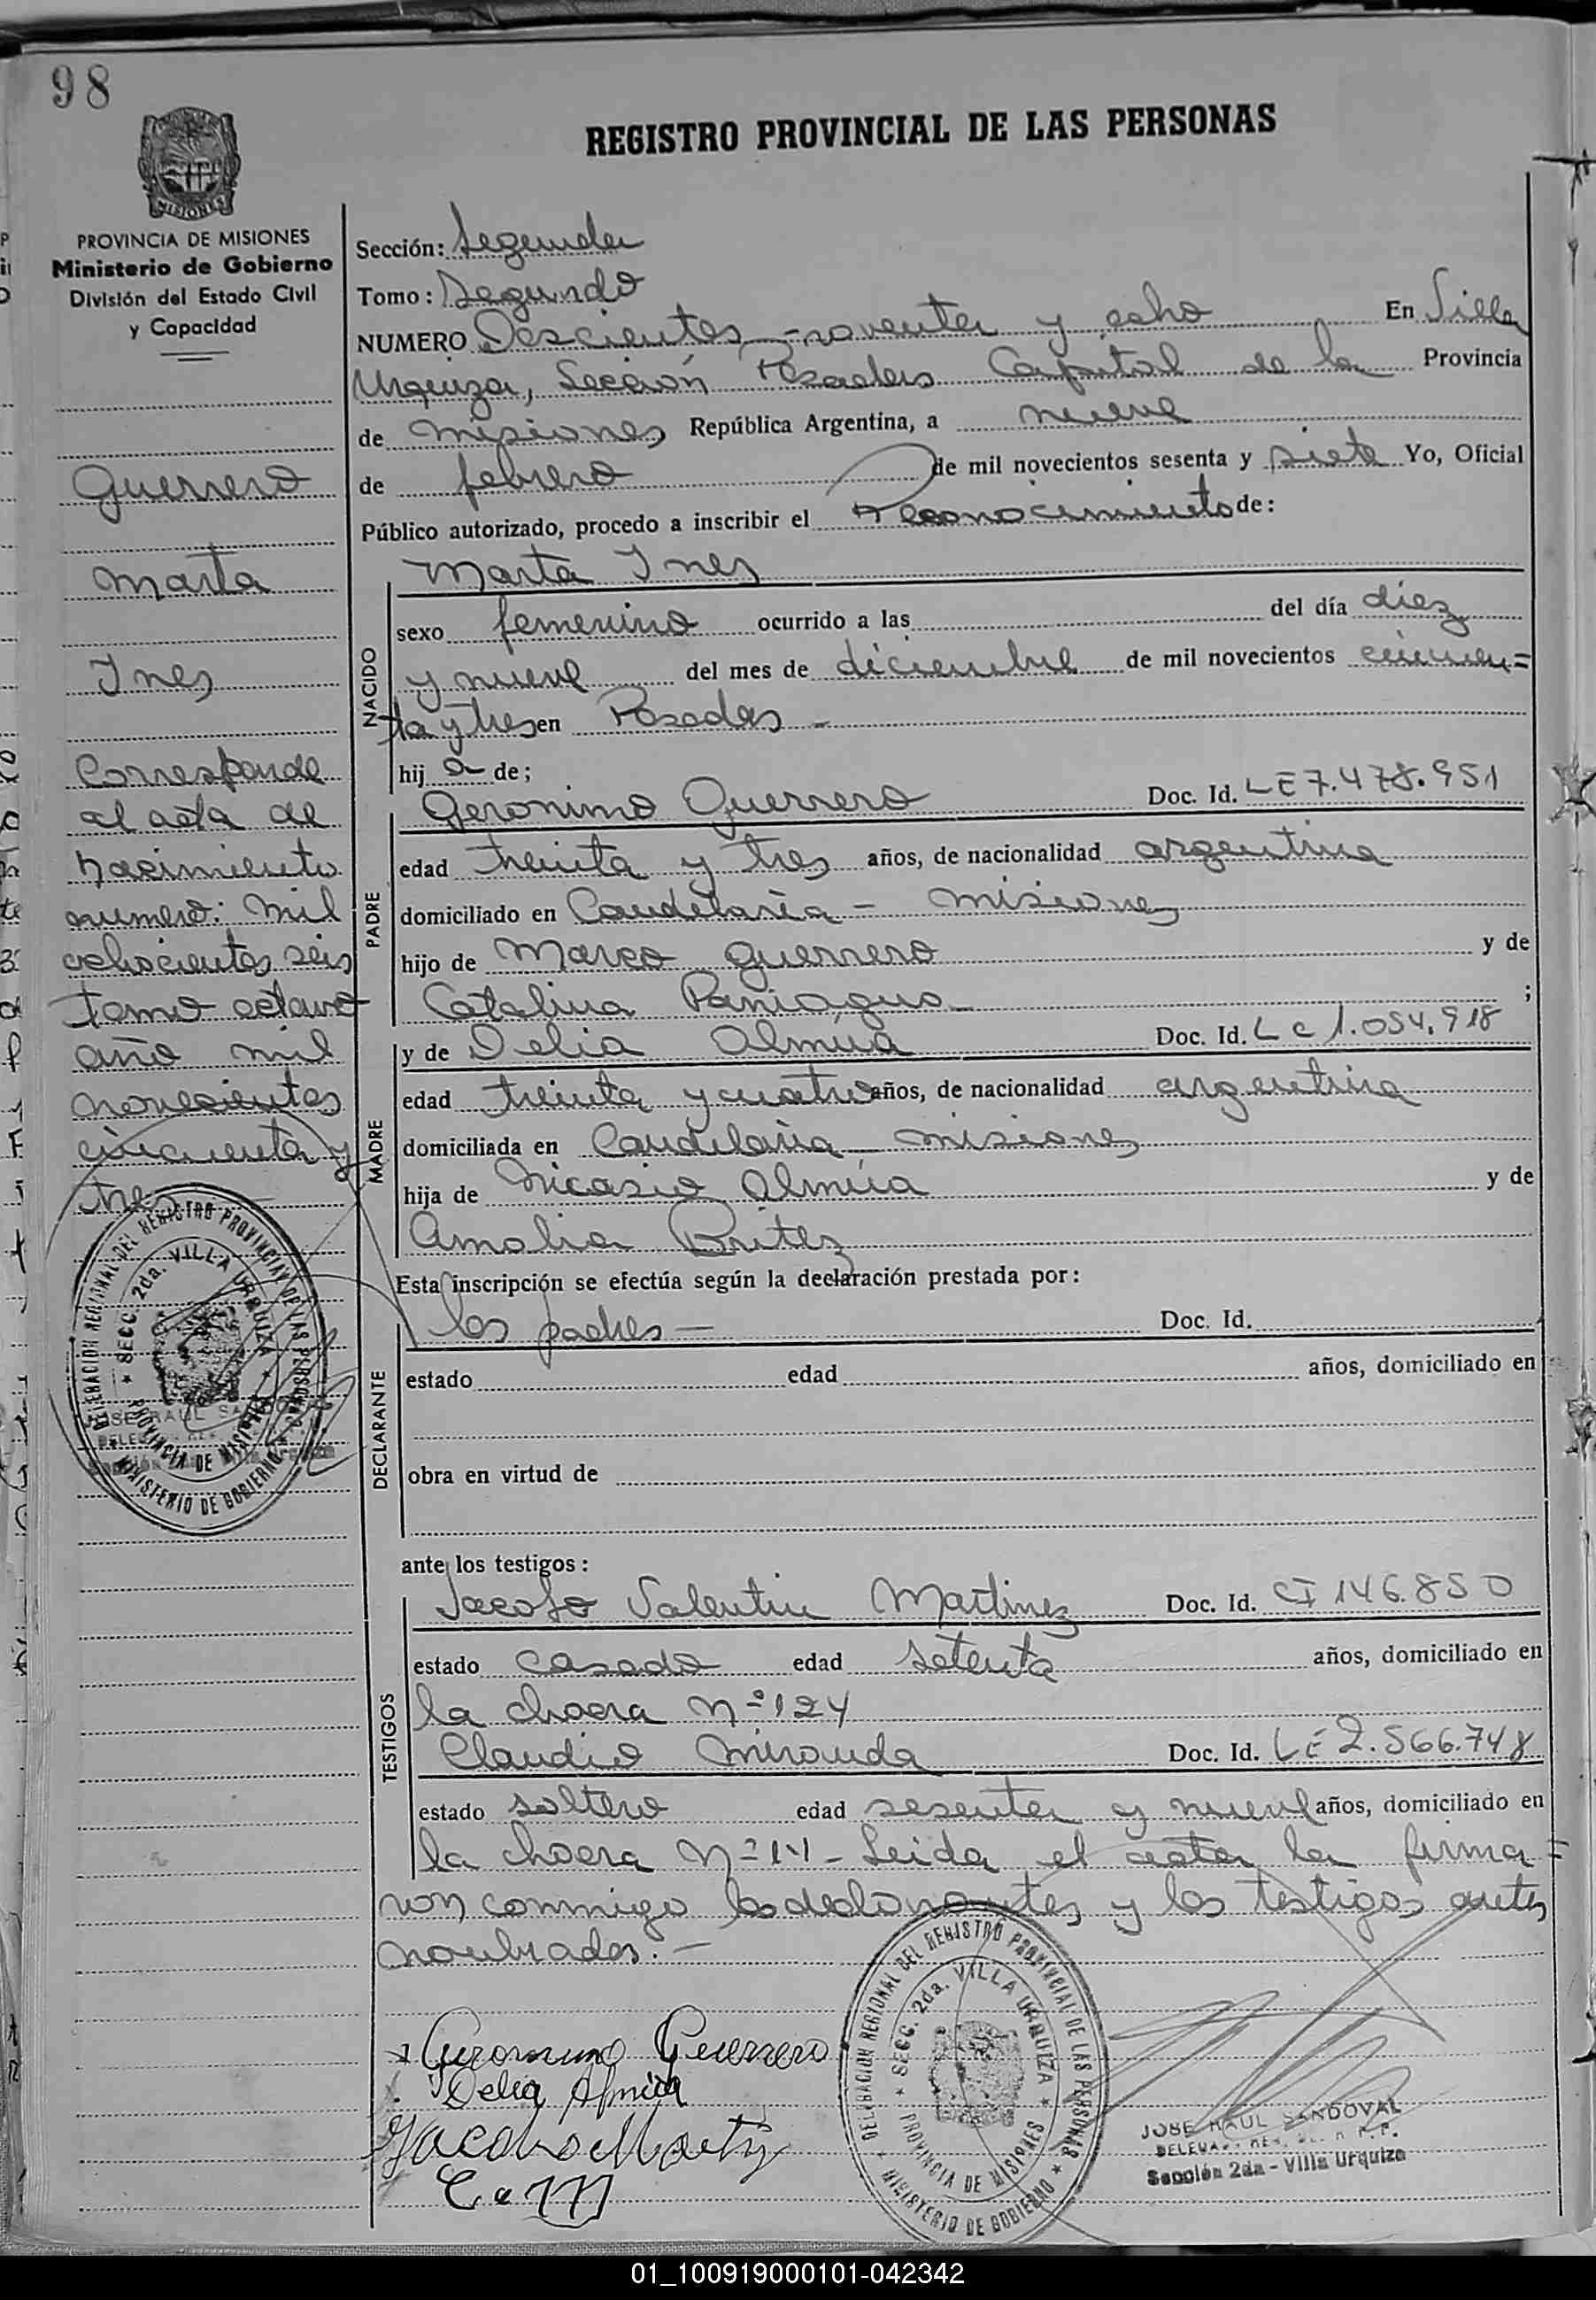 98
REGISTRO PROVINCIAL DE LAS PERSONAS
MISIONES
PROVINCIA DE MISIONES
Ministerio de Gobierno
División del Estado Civil
y Capacidad
Guerrero
Marta
Ines
Corresponde
al acta de
nacimiento
numero: mil
ochocientos seis
tomo octavo
año mil
novecientos
cincuenta y
tres
DELEGACION REGIONAL DEL REGISTRO PROVINCIAL DE LAS PERSONAS
SECC. 2da. VILLA URQUIZA
PROVINCIA DE MISIONES
MINISTERIO DE GOBIERNO
Sección: Segunda
Tomo: Segundo
NUMERO Doscientos noventa y ocho En Villa
Urquiza, Sección Posadas Capital de la Provincia
de Misiones República Argentina, a nueve
de febrero de mil novecientos sesenta y siete Yo, Oficial
Público autorizado, procedo a inscribir el Reconocimiento de:
NACIDO
Marta Ines
sexo femenino ocurrido a las del día diez
y nueve del mes de diciembre de mil novecientos cincuen=
ta y tres en Posadas -
hij a de;
PADRE
Geronimo Guerrero Doc. Id. LE 7.478.951
edad treinta y tres años, de nacionalidad argentina
domiciliado en Candelaria - Misiones
hijo de Marco Guerrero y de
Catalina Paniagua ;
MADRE
y de Delia Almúa Doc. Id. L C 1.054.918
edad treinta y cuatro años, de nacionalidad argentina
domiciliada en Candelaria Misiones
hija de Nicasio Almúa y de
Amalia Britez
Esta inscripción se efectúa según la declaración prestada por:
DECLARANTE
los padres — Doc. Id.
estado edad años, domiciliado en
obra en virtud de
ante los testigos:
TESTIGOS
Jacobo Valentin Martinez Doc. Id. CI 146.850
estado casado edad setenta años, domiciliado en
la chacra Nº 124
Claudio Miranda Doc. Id. LE 2.566.748
estado soltero edad sesenta y nueve años, domiciliado en
la chacra Nº 141 - Leida el acta la firma=
ron conmigo los declarantes y los testigos antes
nombrados. —
Geronimo Guerrero
Delia Almua
Jacobo Marti
C. M
DELEGACION REGIONAL DEL REGISTRO PROVINCIAL DE LAS PERSONAS
SECC. 2da. VILLA URQUIZA
PROVINCIA DE MISIONES
MINISTERIO DE GOBIERNO
JOSE RAUL SANDOVAL
Sección 2da - Villa Urquiza
01_100919000101-042342